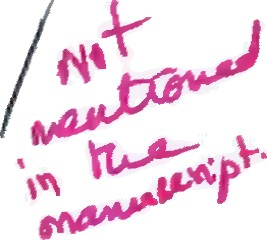 Not
mentioned
in the
manuscript.